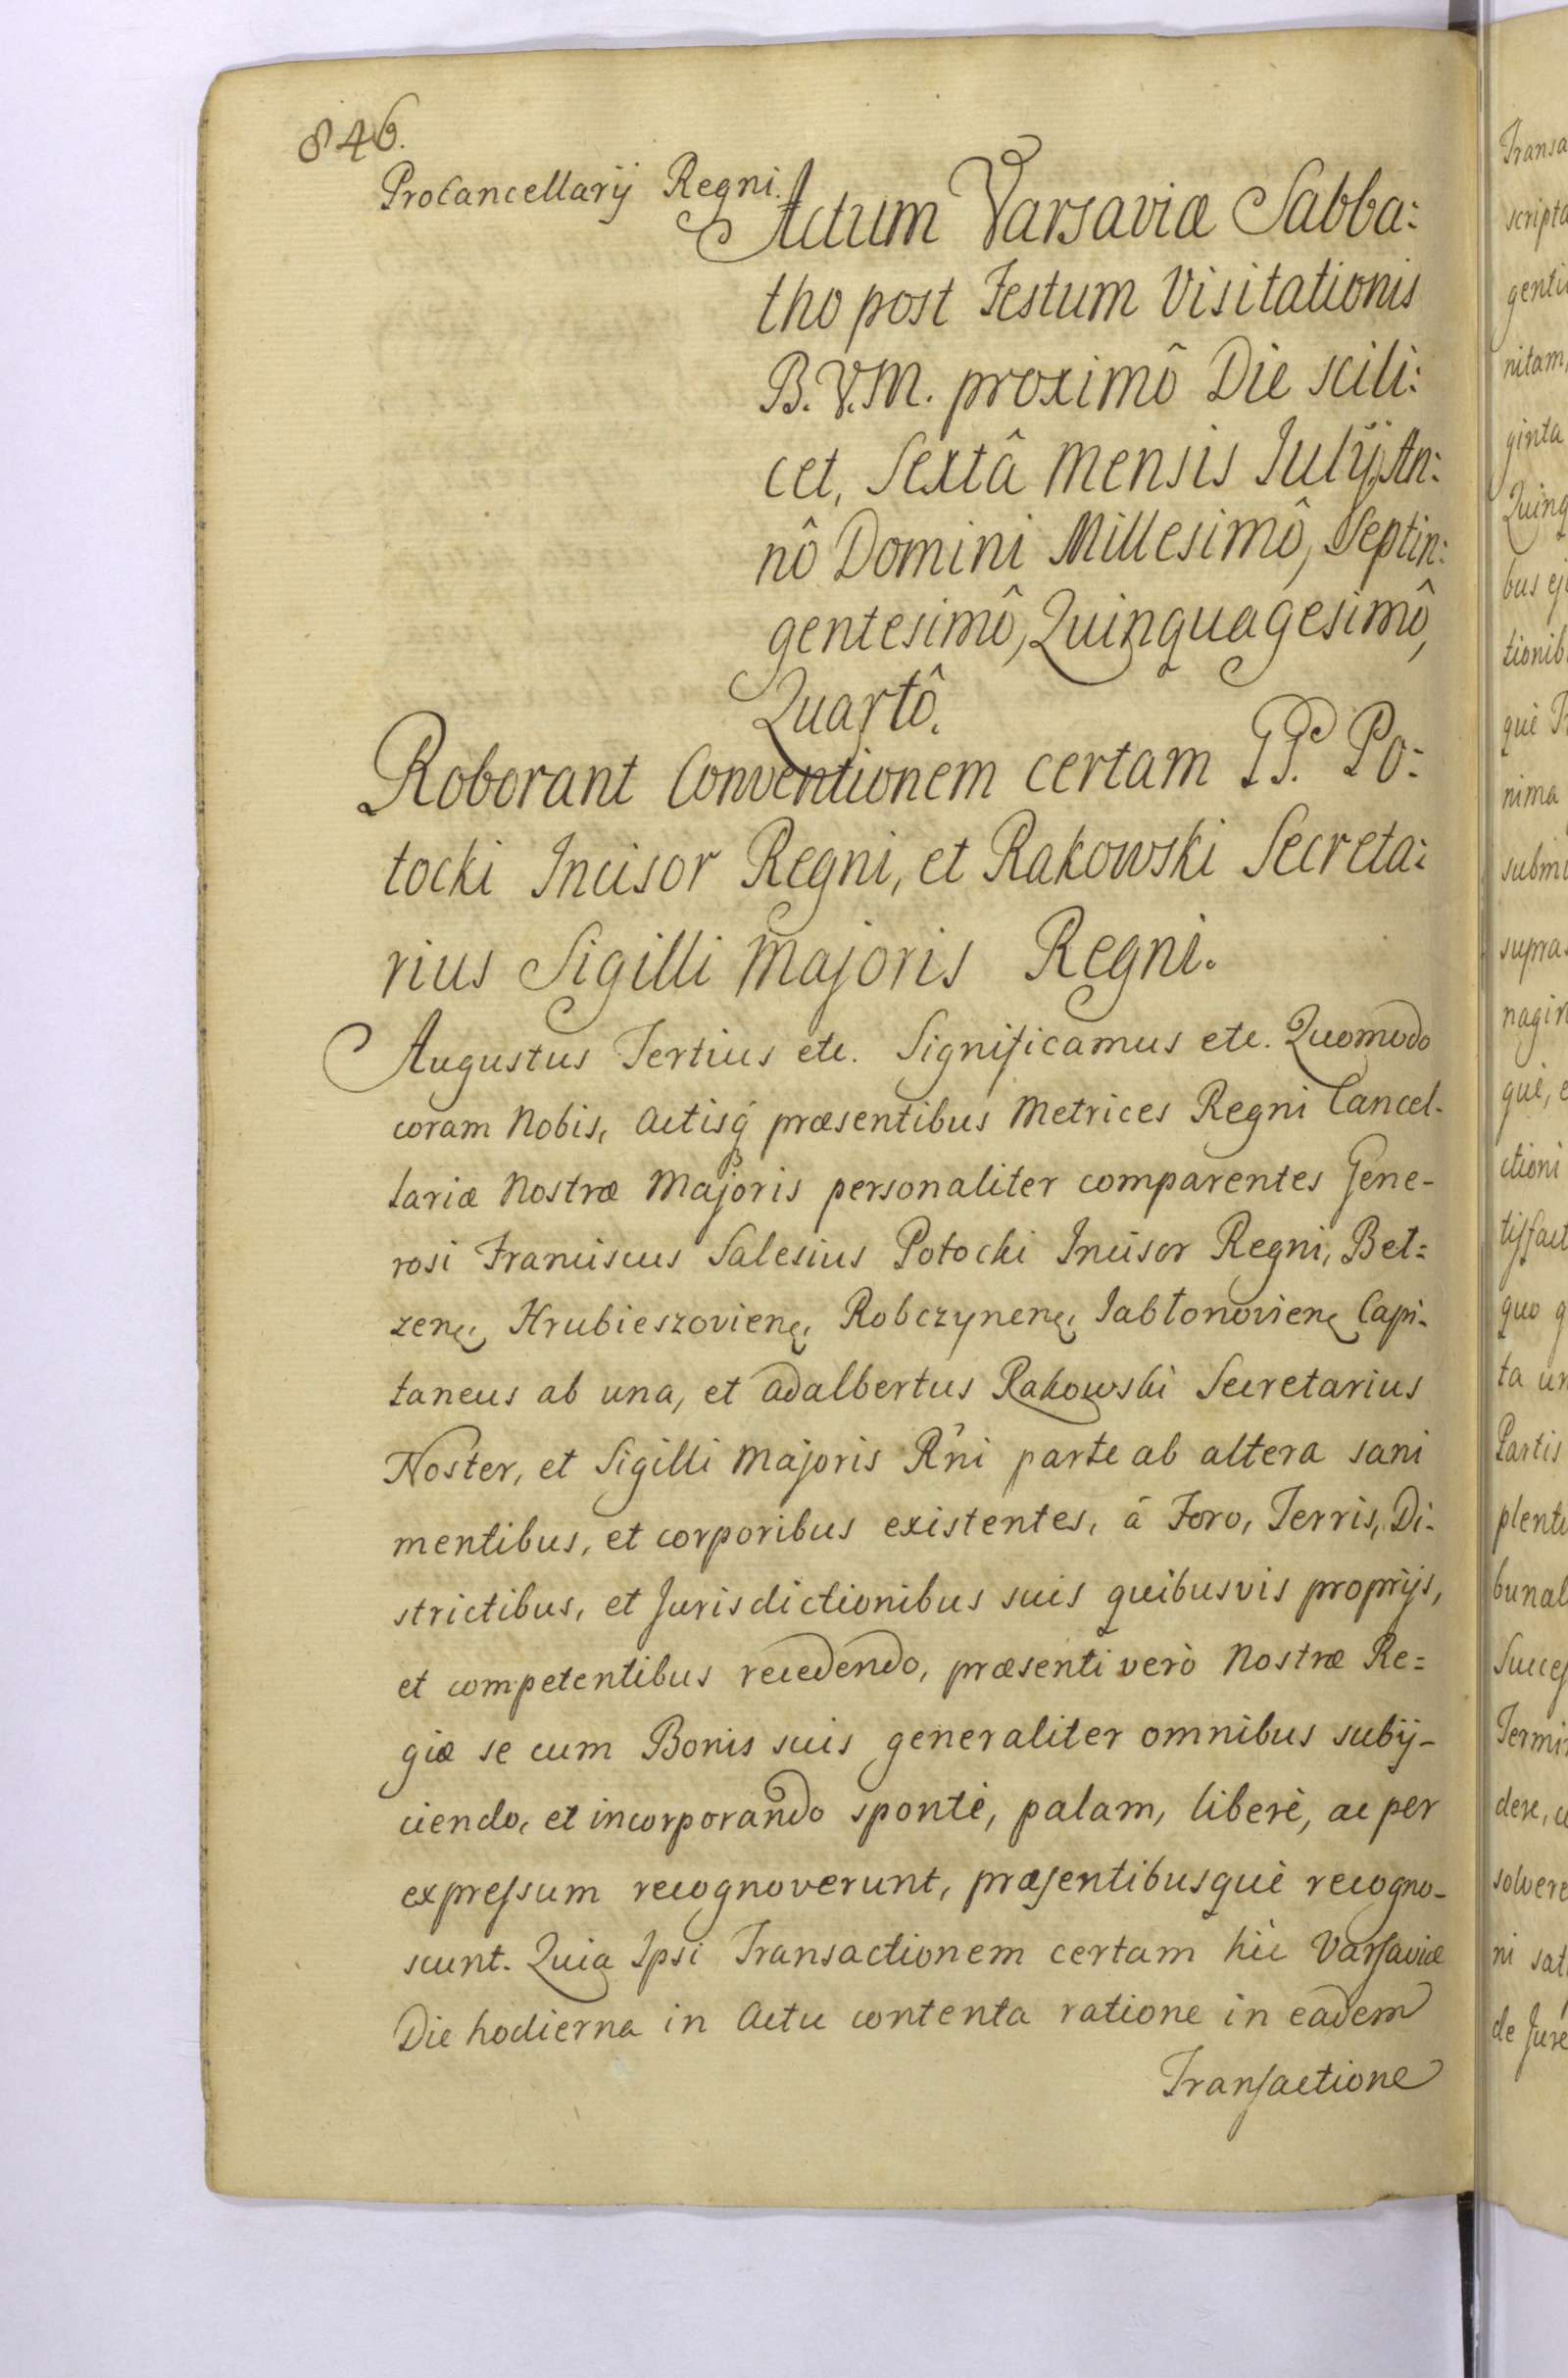 846.
ProCancellarij Regni.
Actum Varsaviæ Sabba:
tho post Festum Visitationis
B. V. M. proximô Die scili:
cet, Sextâ Mensis Julij, An:
nô Domini Millesimô, Septin:
gentesimô, Quinquagesimô,
Quartô.
Roborant Conventionem certam GG. Po:
tocki Incisor Regni, et Rakowski Secreta:
rius Sigilli Majoris Regni.
Augustus Tertius etc. Significamus etc. Quomodo
coram Nobis, Actisq́ præsentibus Metrices Regni Cancel-
lariæ Nostræ Majoris personaliter comparentes Gene-
rosi Franciscus Salesius Potocki Incisor Regni, Bel=
zenȩ, Hrubieszovienȩ, Robczynenȩ, Jabłonovienȩ Capi-
taneus ab una, et Adalbertus Rakowski Secretarius
Noster, et Sigilli Majoris R̃ni parte ab altera sani
mentibus, et corporibus existentes, á Foro, Terris, Di-
strictibus, et Jurisdictionibus suis quibusvis proprijs,
et competentibus recedendo, præsenti verò Nostræ Re=
giæ se cum Bonis suis generaliter omnibus subij-
ciendo, et incorporando spontè, palam, liberè, ac per
expreſsum recognoverunt, præſentibusquè recogno-
scunt. Quia Ipsi Transactionem certam hìc Varſaviæ
Die hodierna in Actu contenta ratione in eadem
Tranſactione
Transa
scripta
genti
nitam,
ginta
Quinq
bus ej
tionib
què
nima
submi
supra
nagin
què, e
ctioni
tisfact
quo q
ta un
Partis
plenti
bunal
Succeſ
Termi
dere,
solvere
ni sat
de Jure